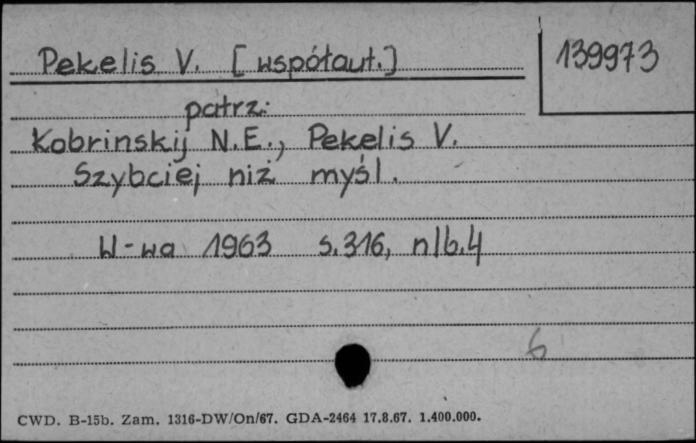 Pekelis V. [współaut.]
139973
patrz:
Kobrinskij N.E., Pekelis V.
Szybciej niż myśl.
W-wa 1963 s.316, nlb.4
6
CWD. B-15b. Zam. 1316-DW/On/67. GDA-2464 17.8.67. 1.400.000.